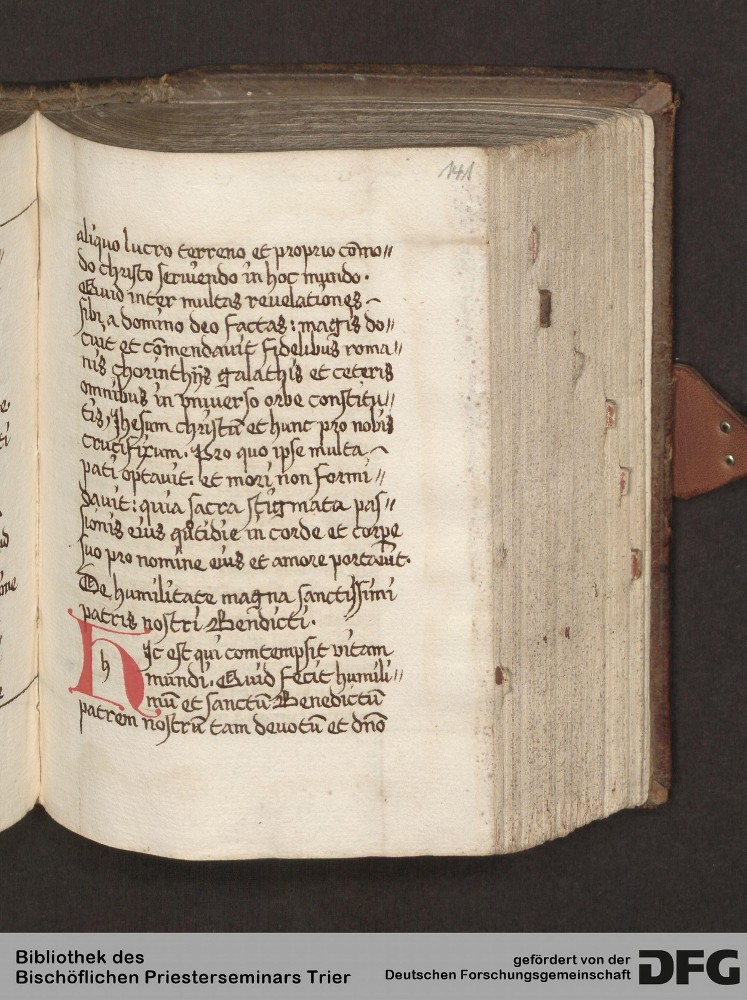 141
aliquo lucro terreno et proprio cōmo〃
do christo serviendo in hoc mundo.
Quid inter multas revelationes
sibi a domino deo factas: magis do〃
cuit et cōmendavit fidelibus roma〃
nis chorinthijs galathis et ceteris
omnibus in vniverso orbe constitu〃
tis, Jhesum christū et hunc pro nobis
crucifixum. Pro quo ipse multa
pati optavit: et mori non formi〃
davit: quia sacra stigmata pas〃
sionis eius qͣtidie in corde et corpe
suo pro nomine eius et amore portavit.
De humilitate magna sanctissimi
patris nostri Benedicti.
h
Hic est qui comtempsit vitam
mundi. Quid fecit humili〃
mū et sanctū Benedictū
patrem nostrū tam devotū et dn̄o
Bibliothek des
Bischöflichen Priesterseminars Trier
gefördert von der
Deutschen Forschungsgemeinschaft
DFG